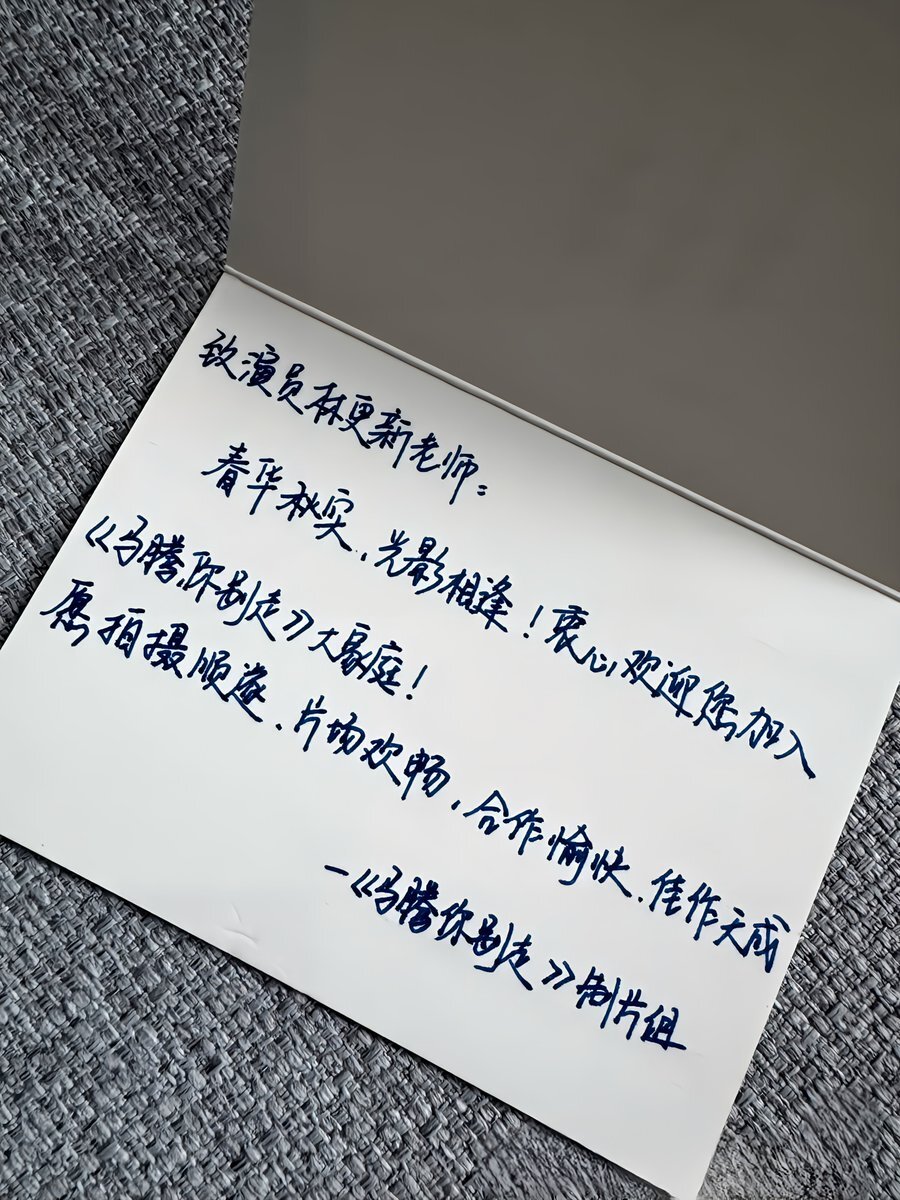 致演员林更新老师：
春华秋实、光影相逢！衷心欢迎您加入
《马腾你别走》大家庭！
愿拍摄顺遂、片场欢畅，合作愉快、佳作天成
—《马腾你别走》制片组